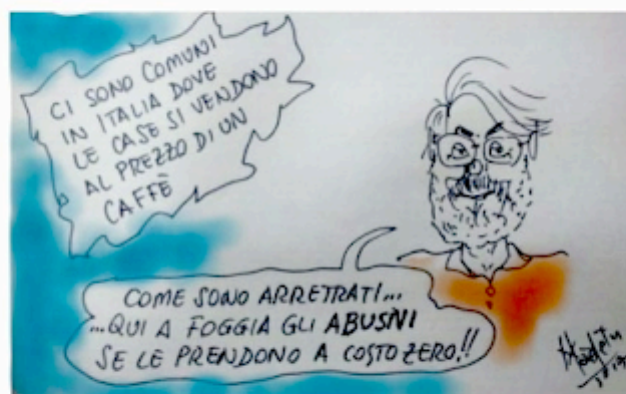 CI SONO COMUNI
IN ITALIA DOVE
LE CASE SI VENDONO
AL PREZZO DI UN
CAFFÈ
COME SONO ARRETRATI...
...QUI A FOGGIA GLI ABUSIVI
SE LE PRENDONO A COSTO ZERO!!